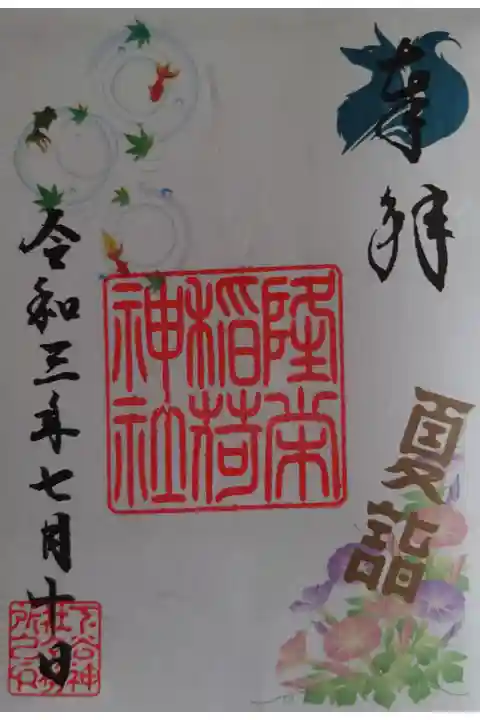 奉拝
夏詣
隆栄
稲荷
神社
令和三年七月十日
下谷神
社社務
所之印